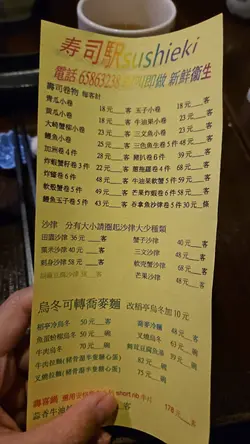 寿司駅sushieki
電話 65863238 即叫即做 新鮮衛生
壽司卷物 每客計
青瓜小卷 18元___客 玉子小卷 18元___客
黃瓜小卷 18元___客 牛油果小卷 23元___客
大崎蟹柳小卷 23元___客 三文魚小卷 23元___客
鰻魚小卷 25元___客 三色魚生卷5件 48元___客
加洲卷4件 23元___客 豬扒卷6件 39元___客
炸蝦蟹籽卷3件 22元___客 4件 39元___客
炸爐卷6件 48元___客 牛油果軟蟹卷 59元___客
軟殼蟹卷5件 50元___客 芒果炸蝦卷6件 58元___客
鰻魚玉子卷5件 50元___客 吞拿魚沙律卷5件 30元___條
沙律 分有大小請圈起沙律大少種類
田園沙律 36元___客 蟹子沙律 40元___客
粟米沙律 40元___客 三文沙律 48元___客
刺身沙律 58元___客 軟殼蟹沙律 68元___客
芒果沙律 48元___客
烏冬可轉蕎麥麵 改稻亭烏冬加10元
稻亭冷烏冬 50元___客 蕎麥冷麵 48元___客
魚面蛤蜊烏冬 63元___碗 叉燒烏冬 63元___碗
牛肉烏冬 63元___碗
牛肉拉麵(豬骨湯半隻糖心蛋) 62元___碗
叉燒拉麵(豬骨湯半隻糖心蛋) 75元___碗
壽喜鍋 short rib牛片 178元